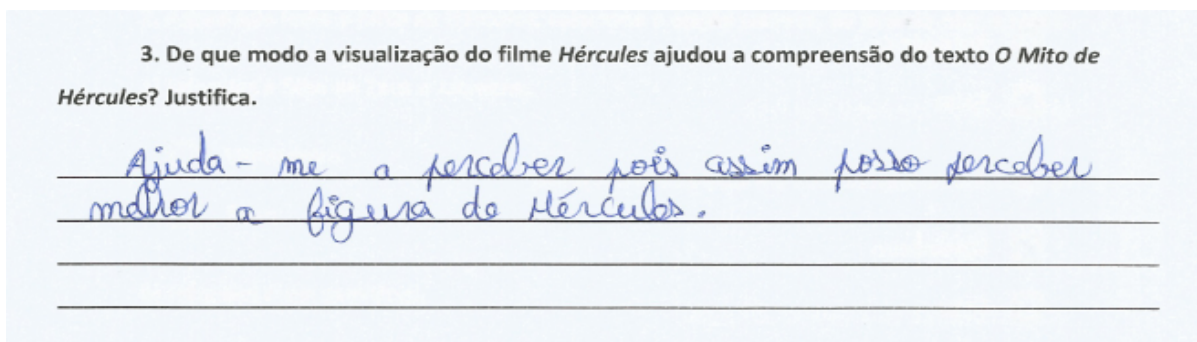 3. De que modo a visualização do filme Hércules ajudou a compreensão do texto O Mito de
Hércules? Justifica.
Ajuda-me a perceber pois assim posso perceber
melhor a figura do Hércules.